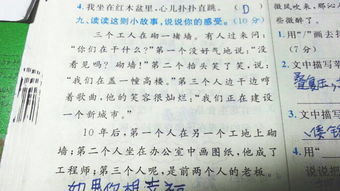 4.我坐在红木盆里,心儿扑扑直跳。 (D)
九、读读这则小故事,说说你的感受。(10分)
三个工人在砌一堵墙。有人过来问:
“你们在干什么?”第一个没好气地说:“没
看见吗?砌墙!”第二个抬头笑了笑,说:
“我们在盖一幢高楼。”第三个人边干边哼
着歌曲,他的笑容很灿烂:“我们正在建设
一个新城市。”
10年后,第一个人在另一个工地上砌
墙;第二个人坐在办公室中画图纸,他成了
工程师;第三个人呢,是前两个人的老板。
如果你想幸福
微风吹来,那
些微醉了。
1.用“/”画去
(7分)
2.文中描写
3.文中描写
4.用“
说说把